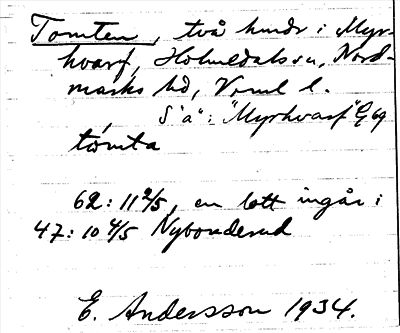 Tomten, två hmdr i Myr-
hvarf, Holmedals sn, Nord-
marks hd, Vrml l.
S å: "Myrhvarf" G 69
tòmta
62: 11 2/5, en lott ingår i
47: 10 4/5 Nybonderud
E. Andersson 1934.